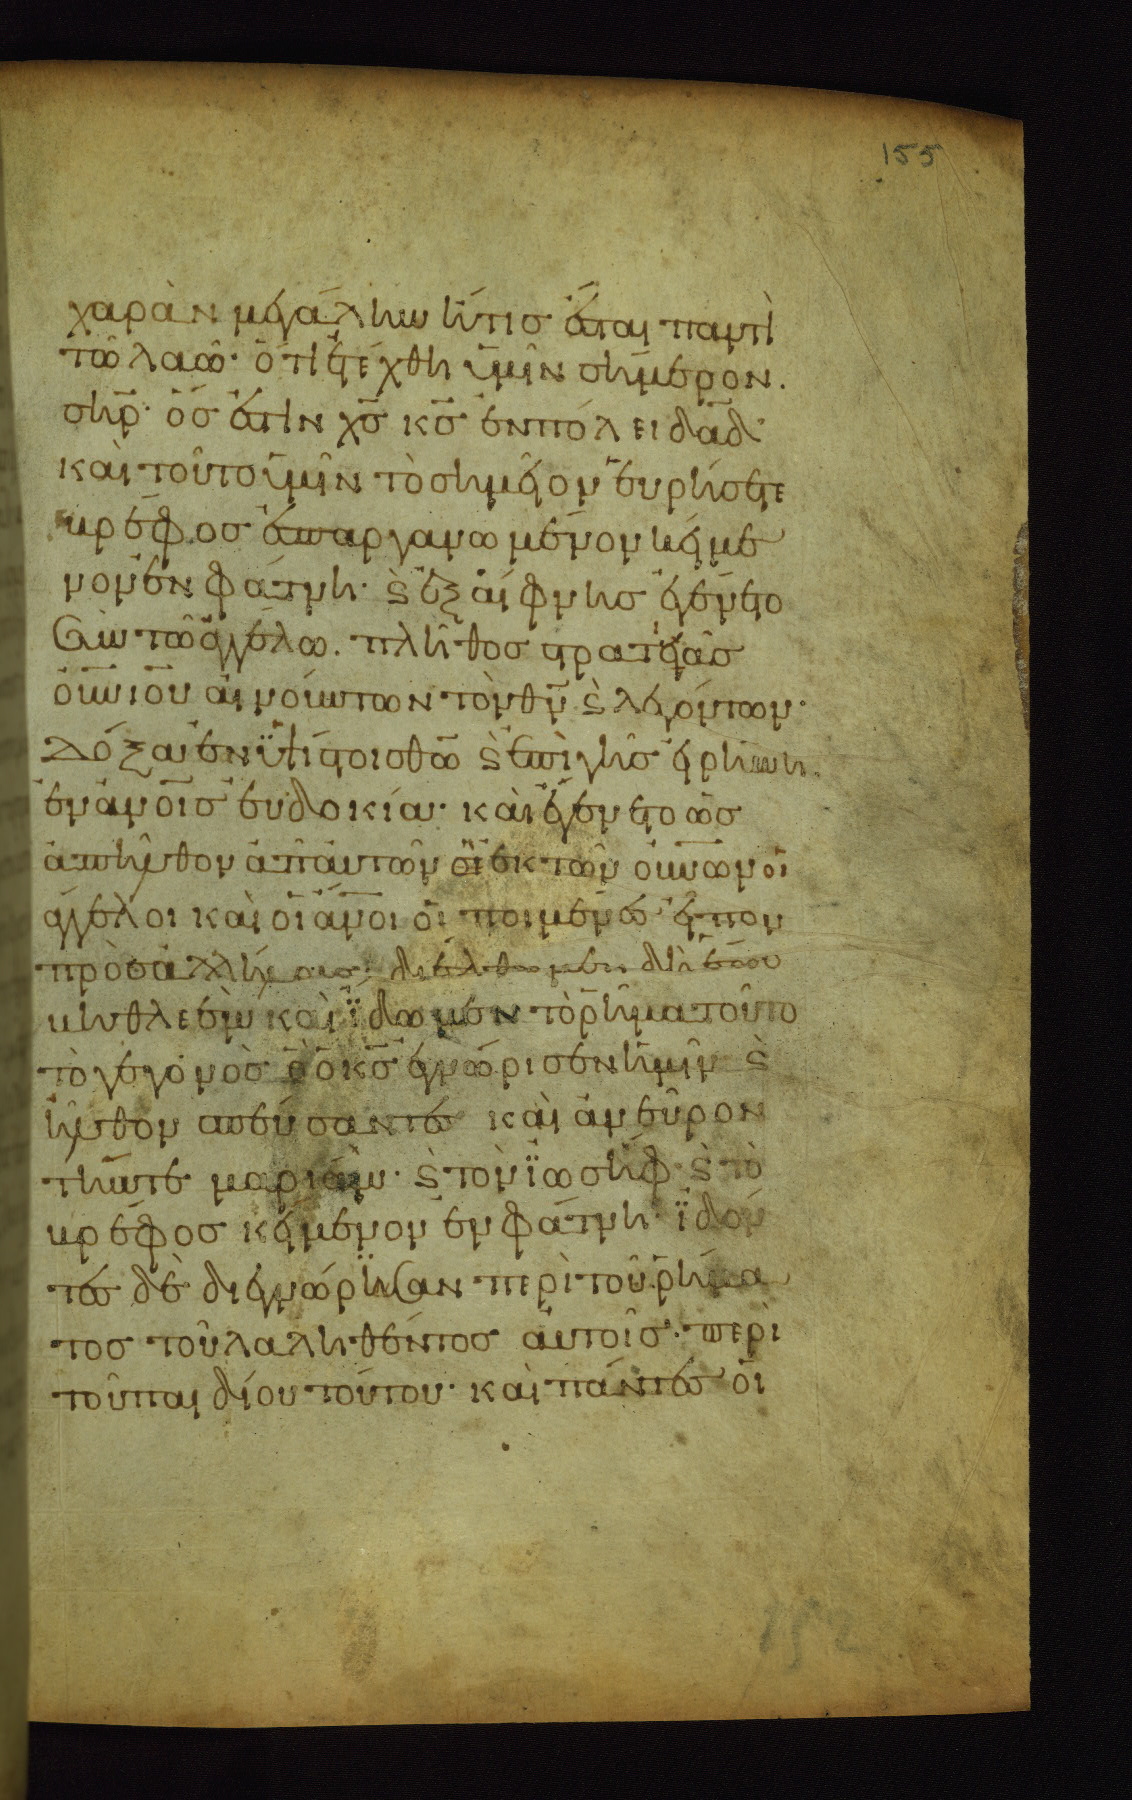 155
χαρὰν μεγάλην ἥτις ἔσται παντὶ
τῶ λαῶ· ὅτι ἐτέχθη ὑμῖν σήμερον.
σηρ̅· ὅς ἐστὶν χς̅ κς̅ ἐν πόλει δαδ̅·
καὶ τοῦτο ὑμῖν τὸ σημεῖον εὑρήσετε
βρέφος ἐσπαργανωμένον κείμε
νον ἐν φάτνη· ϗ ἐξαίφνης ἐγένετο
σὺν τῶ ἀγγέλω. πλῆθος στρατιᾶς
οὐνιου̅ αἰνούντων τὸν θν̅ ϗ λεγόντων·
Δόξα ἐν ὑψίστοις θω̅ ϗ ἐπὶ γῆς εἰρήνη.
ἐν ἀνοις̅ εὐδοκία· καὶ ἐγένετο ὡς
ἀπῆλθον ἀπ' αὐτῶν εἰς τὸν οὐνον̅ οἱ
ἄγγελοι καὶ οἱ ἀνοι̅ οἱ ποιμένες εἶπον
πρὸς ἀλλήλους· διέλθωμεν δὴ ἕως
βηθλεὲμ καὶ ἴδωμεν τὸ ῥῆμα τοῦτο
τὸ γεγονὸς ὃ ὁ κς̅ ἐγνώρισεν ἡμῖν ϗ
ἦλθον σπεύσαντες καὶ ἀνεῦρον
τήν τε μαριὰμ· ϗ τὸν ἰωσὴφ· ϗ τὸ
βρέφος κείμενον ἐν φάτνη· ἰδόν
τες δὲ διεγνώρισαν περὶ τοῦ ῥήμα
τος τοῦ λαληθέντος αὐτοῖς· περὶ
τοῦ παιδίου τούτου· καὶ πάντες οἱ
152